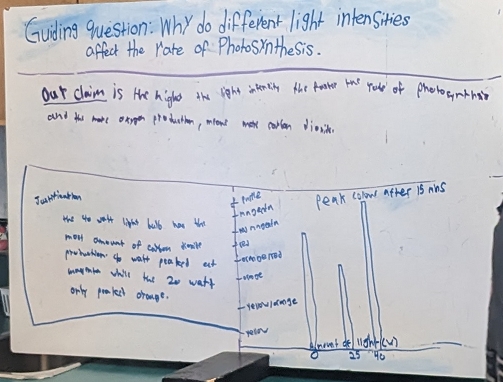 Guiding question: Why do different light intensities
affect the rate of Photosynthesis.
Our claim is the higher the light intensity the faster the rate of photosynthesis
and the more oxygen production, means more carbon dioxide.
Justification
the 40 watt light bulb has the
most amount of carbon dioxide
production 40 watt peaked at
magenta while the 20 watt
only peaked orange.
Peak colour after 15 mns
purple
magenta
red magenta
red
orange/red
orange
yellow/orange
yellow
0 25 40
Amount of light (W)